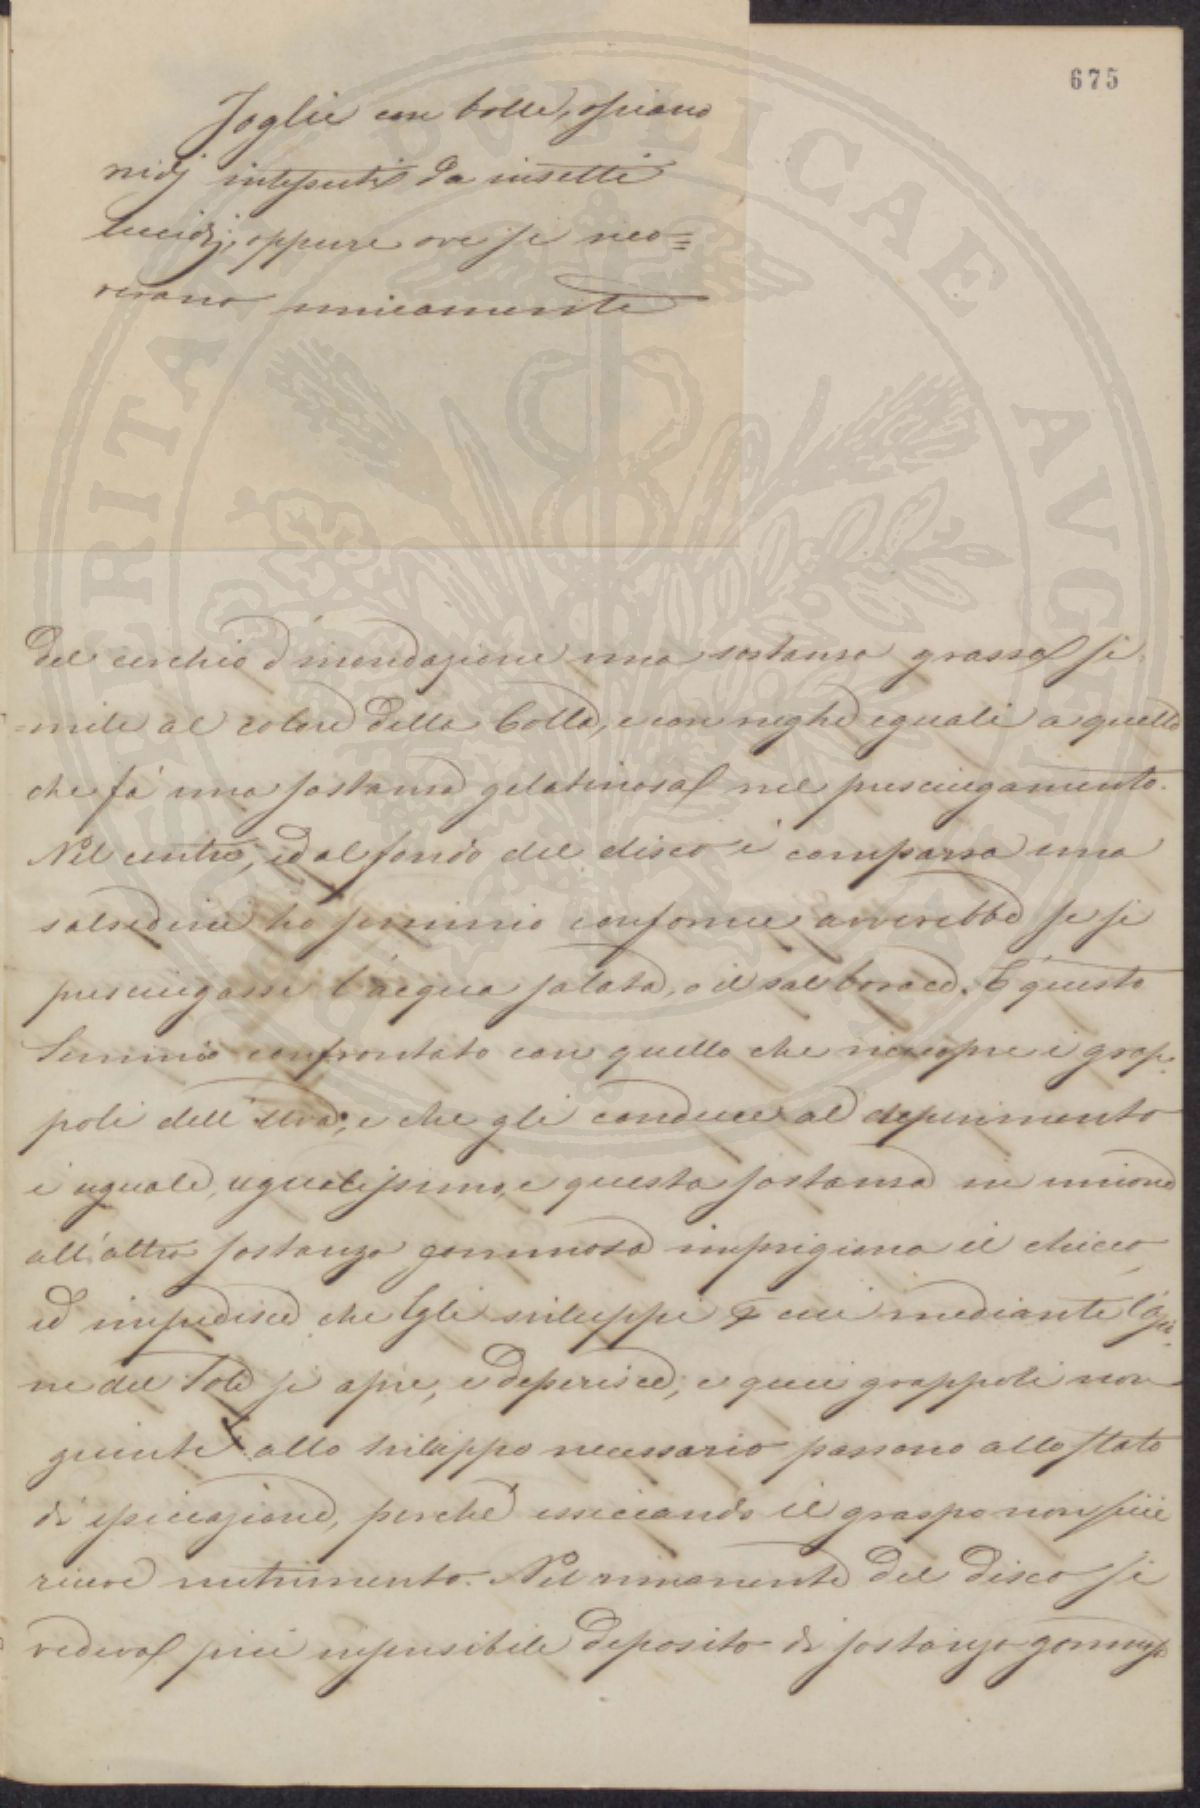 675
Foglie con bolle, ossiano
nidj intessuti da insetti
lucidj, oppure ove si rico=
verano unicamente
del cerchio d'inondazione una sostanza grassa si
=mile al colore della Colla, e con rughe eguali a quella
che fà una sostanza gelatinosa nel presciugamento.
Nel centro, ed al fondo del disco è comparsa una
salsedine ho semminio conforme avverebbe se si
presciugasse l'acqua salata, o il sal borace. E questo
Semminio confrontato con quello che ricuopre i grap=
poli dell'Uva, e che gli conduce al deperimento
è uguale, ugualissimo, e questa sostanza in unione
all'altra sostanza gommosa imprigiona il chicco
ed impedisce che Egli sviluppi per cui mediante l'azio=
ne del Sole si apre, e deperisce, e quei grappoli non
giunti allo sviluppo necessario passano allo stato
di essiccazione, perchè essiccando il graspo non più
riceve nutrimento. Nel rimanente del Disco si
vedeva più insensibile deposito di sostanza gommosa
PUBLICAE AVGE